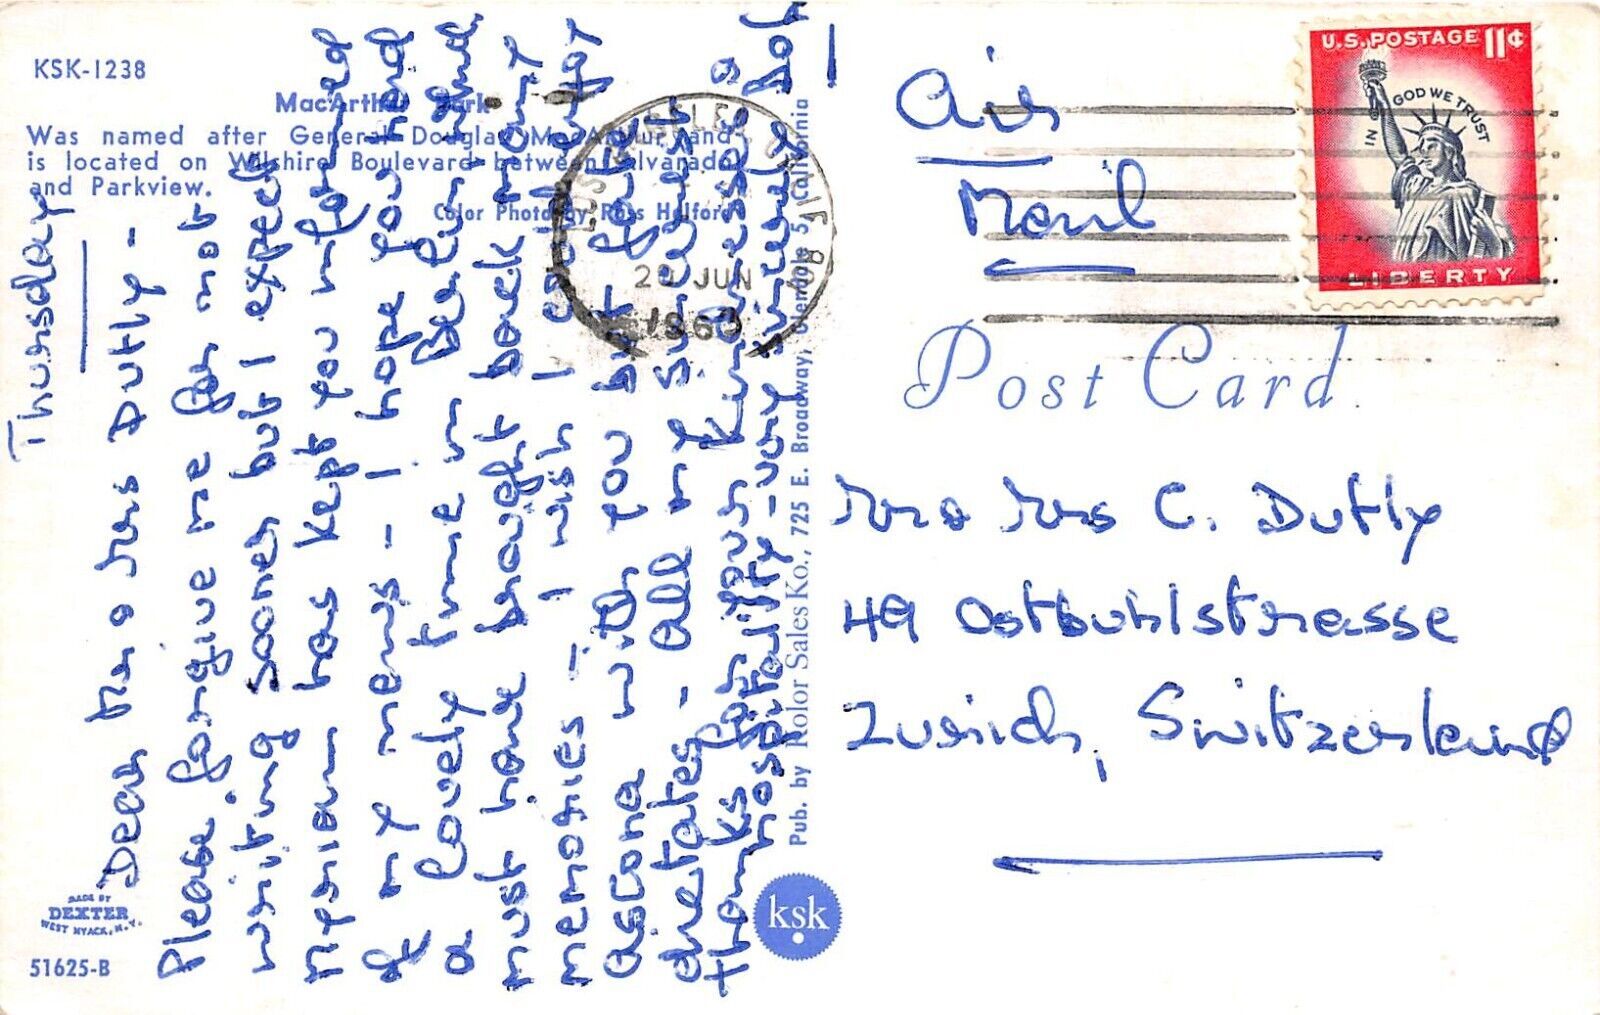 KSK-1238
MacArthur Park
Was named after General Douglas MacArthur and
is located on Wilshire Boulevard between Alvarado
and Parkview.
Color Photo by Ross Halford
Thursday
Dear Mr & Mrs Dutly -
Please forgive me for not
writing sooner but I expect
Myriam has kept you informed
of my news - I hope you had
a lovely time in Berlin and
must have brought back many
memories - I wish I could enjoy
Ascona with you but fate
dictates - All my sincerest
thanks for your kindness &
hospitality - very sincerely
MADE BY
DEXTER
WEST NYACK, N.Y.
51625-B
Pub. by Kolor Sales Ko., 725 E. Broadway, Glendale 5, California
ksk
LOS ANGELES CALIF
JUN
1960
Air
Mail
U.S. POSTAGE 11¢
IN GOD WE TRUST
LIBERTY
Post Card
Mr & Mrs C. Dutly
49 Ostbuhlstrasse
Zurich, Switzerland